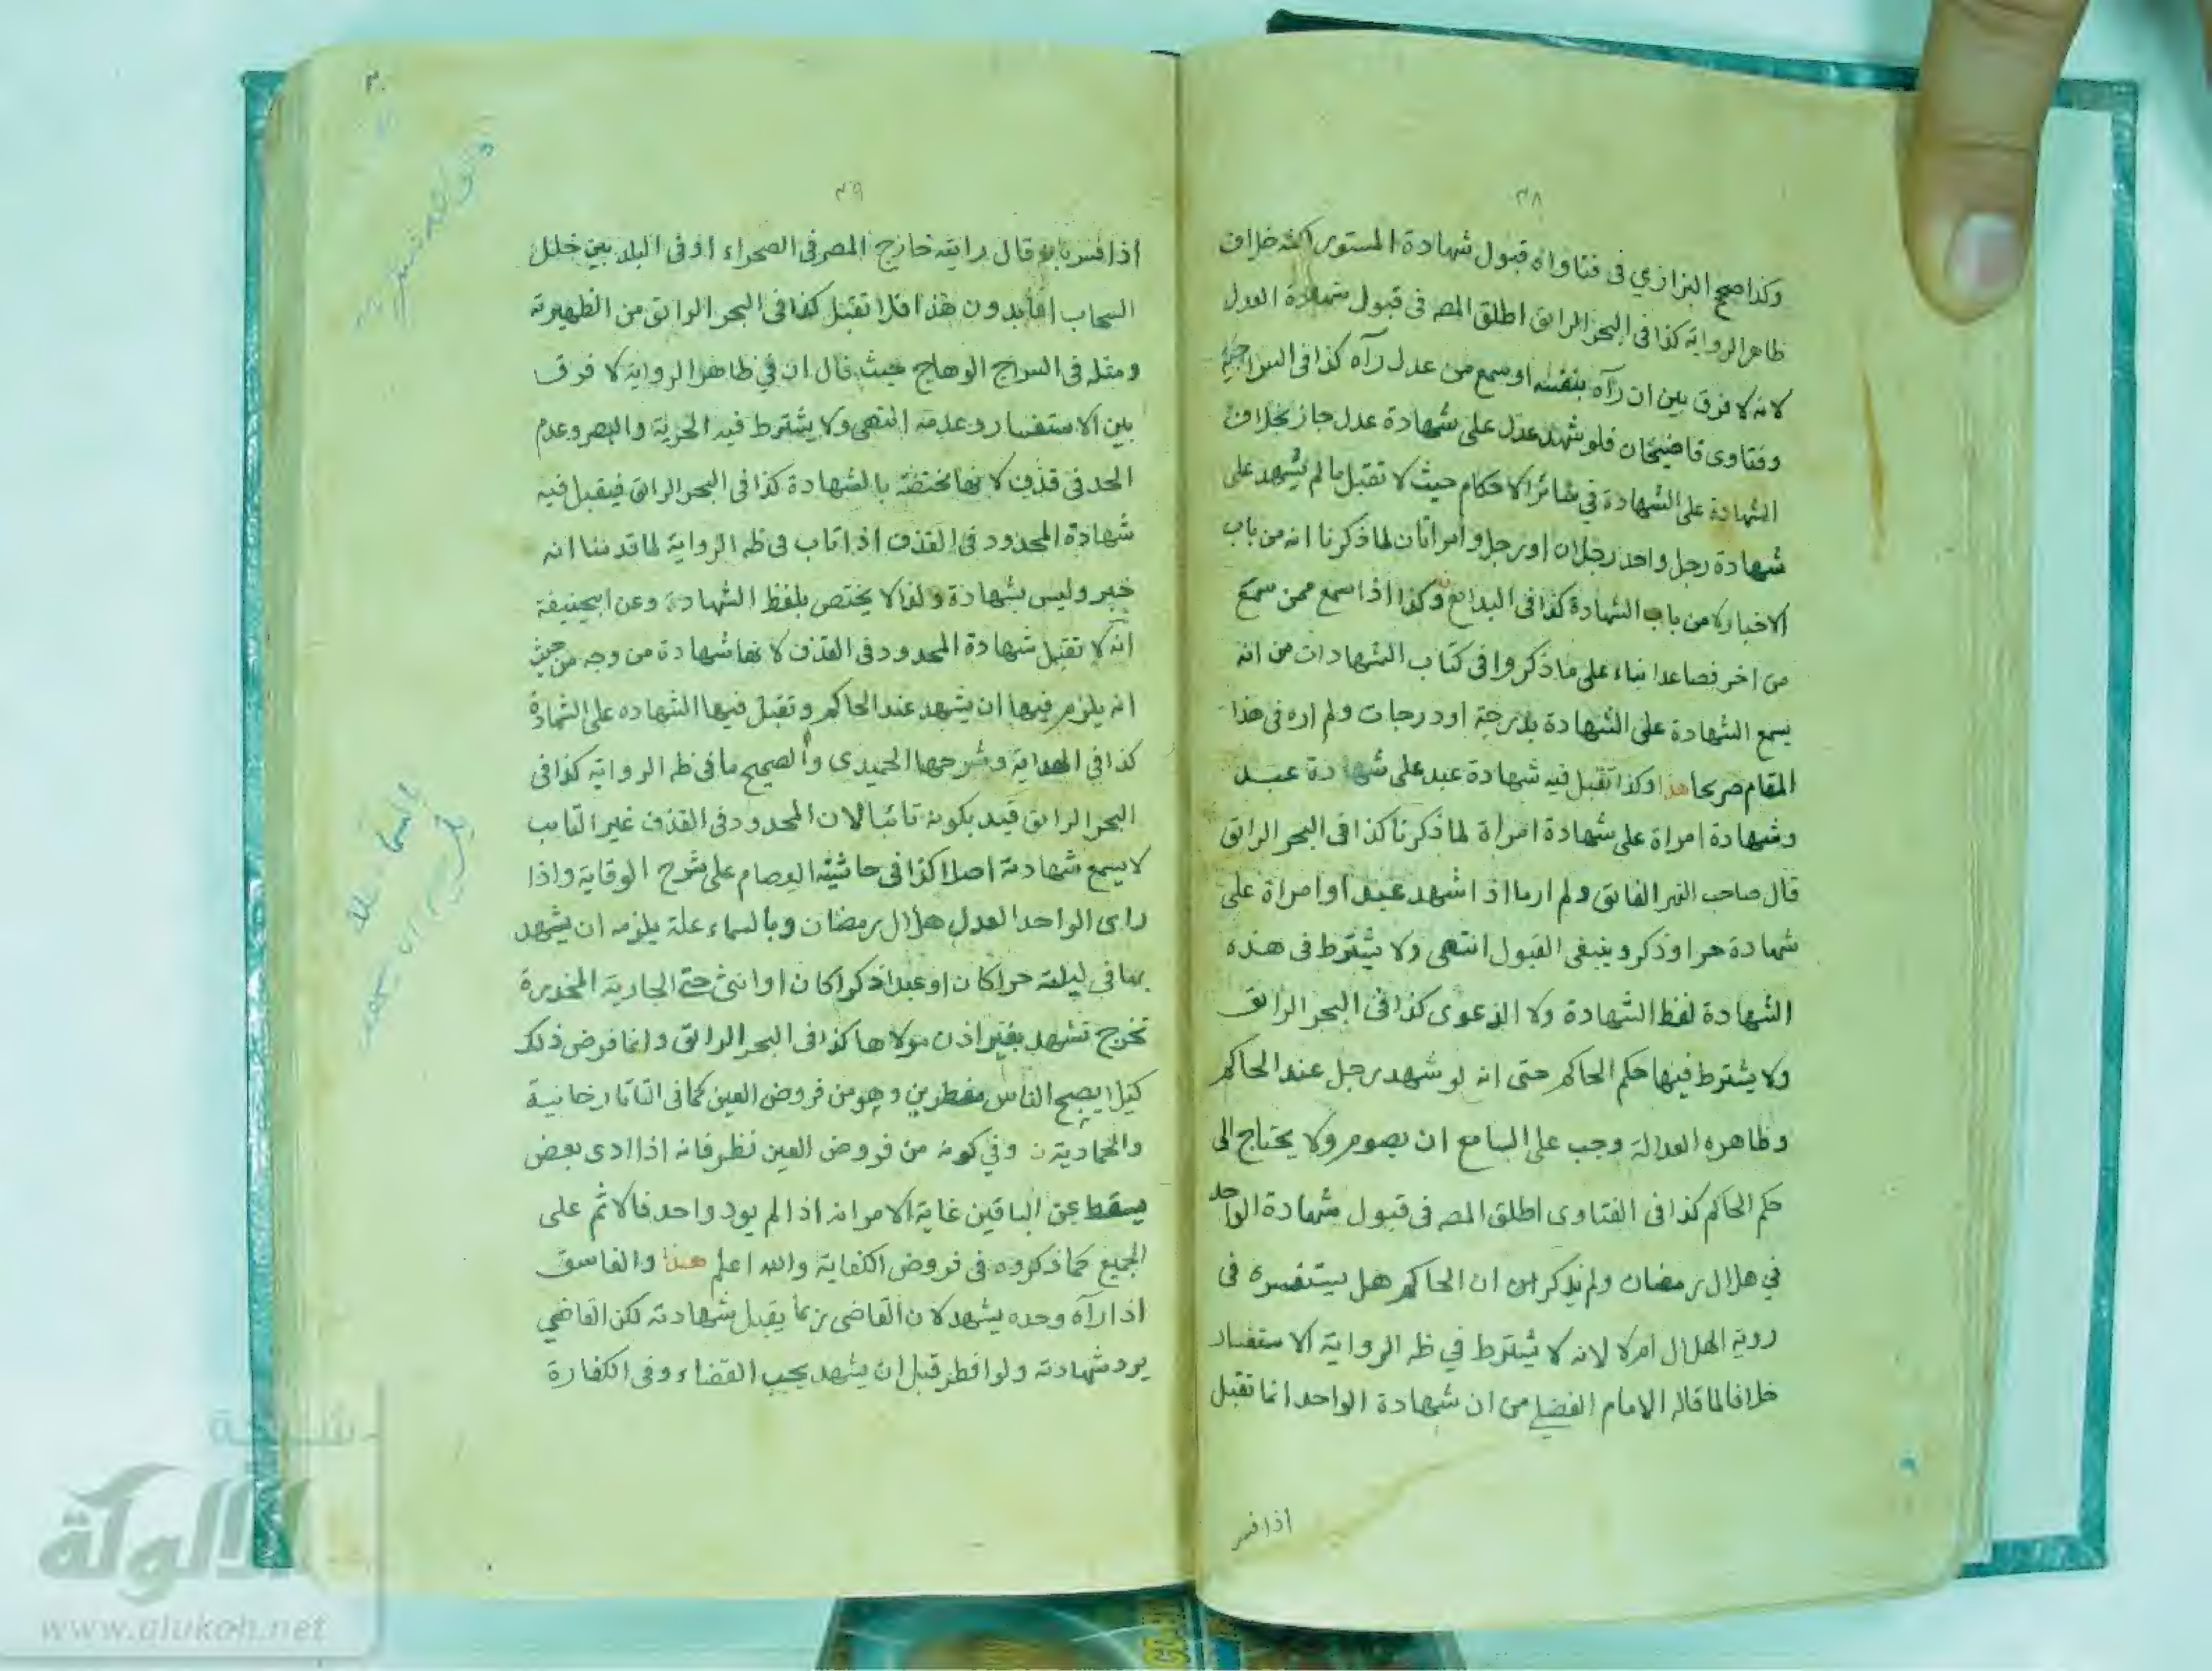 ٣٨
وكذا صحح البزازي في فتاواه قبول شهادة المستور لكنه خلاف
ظاهر الرواية كذا في البحر الرائق اطلق المصـ في قبول شهادة العدل
لانه لا فرق بين ان رآه بنفسه او سمع من عدل رآه كذا في السراجية
وفتاوى قاضيخان فلو شهد عدل على شهادة عدل جاز بخلاف
الشهادة على الشهادة في سائر الاحكام حيث لا تقبل ما لم يشهد على
شهادة رجل واحد رجلان او رجل وامراتان لما ذكرنا انه من باب
الاخبار لا من باب الشهادة كذا في البدائع وكذا اذا سمع ممن سمع
من اخر فصاعدا بناء على ما ذكروا في كتاب الشهادات من انه
يسمع الشهادة على الشهادة بدرجة او درجات ولم اره في هذا
المقام صريحا هذا وكذا تقبل فيه شهادة عبد على شهادة عبد
وشهادة امراة على شهادة امراة لما ذكرنا كذا في البحر الرائق
قال صاحب النهر الفائق ولم ار ما اذا شهد عبد او امراة على
شهادة حر او ذكر وينبغي القبول انتهى ولا يشترط في هذه
الشهادة لفظ الشهادة ولا الدعوى كذا في البحر الرائق
ولا يشترط فيها حكم الحاكم حتى انه لو شهد رجل عند الحاكم
وظاهره العدالة وجب على السامع ان يصوم ولا يحتاج الى
حكم الحاكم كذا في الفتاوى اطلق المصـ في قبول شهادة الواحد
في هلال رمضان ولم يذكر ان الحاكم هل يستفسره في
روية الهلال ام لا لانه لا يشترط في ظـ الرواية الاستفسار
خلافا لما قاله الامام الفضلي من ان شهادة الواحد انما تقبل
اذا فسر
٣٩
اذا فسر بان قال رايته خارج المصر في الصحراء او في البلد بين خلل
السحاب اما بدون هذا فلا تقبل كذا في البحر الرائق من الظهيرية
ومثله في السراج الوهاج حيث قال ان في ظاهر الرواية لا فرق
بين الاستفسار وعدمه انتهى ولا يشترط فيه الحرية والبصر وعدم
الحد في قذف لانها مختصة بالشهادة كذا في البحر الرائق فيقبل فيه
شهادة المحدود في القذف اذا تاب في ظـ الرواية لما قدمنا انه
خبر وليس بشهادة ولذا لا يختص بلفظ الشهادة وعن ابيحنيفة
انه لا تقبل شهادة المحدود في القذف لانها شهادة من وجه من حيث
انه يلزم فيها ان يشهد عند الحاكم وتقبل فيها الشهاده على الشهادة
كذا في الهداية وشرحها الحميدى والصحيح ما في ظـ الرواية كذا في
البحر الرائق قيد بكونه تائبا لان المحدود في القذف غير التايب
لا يسمع شهادته اصلا كذا في حاشية العصام على شرح الوقاية واذا
راى الواحد العدل هلال رمضان وبالسماء علة يلزمه ان يشهد
بها في ليلته حرا كان او عبدا ذكرا كان او انثى حتى الجارية المخدرة
تخرج تشهد بغير اذن مولاها كذا في البحر الرائق وانما فرض ذلك
كيلا يصبح الناس مفطرين وهو من فروض العين كما في التاتارخانية
والحمادية وفي كونه من فروض العين نظر فانه اذا ادى بعض
يسقط عن الباقين غاية الامر انه اذا لم يود واحد فالاثم على
الجميع كما ذكروه في فروض الكفاية والله اعلم هذا والفاسق
اذا رآه وحده يشهد لان القاضى ربما يقبل شهادته لكن القاضي
يرد شهادته ولو افطر قبل ان يشهد يجب القضاء وفي الكفارة
شبكة
الألوكة
www.alukah.net